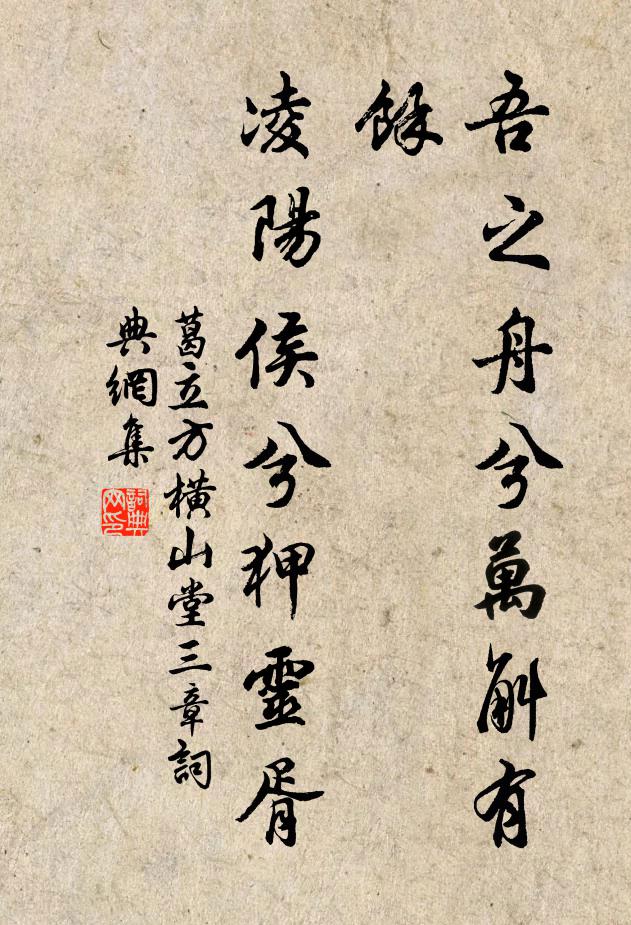 吾之舟兮萬斛有
餘
凌陽侯兮狎靈胥
葛立方橫山堂三章詞
典網集
詞典網印